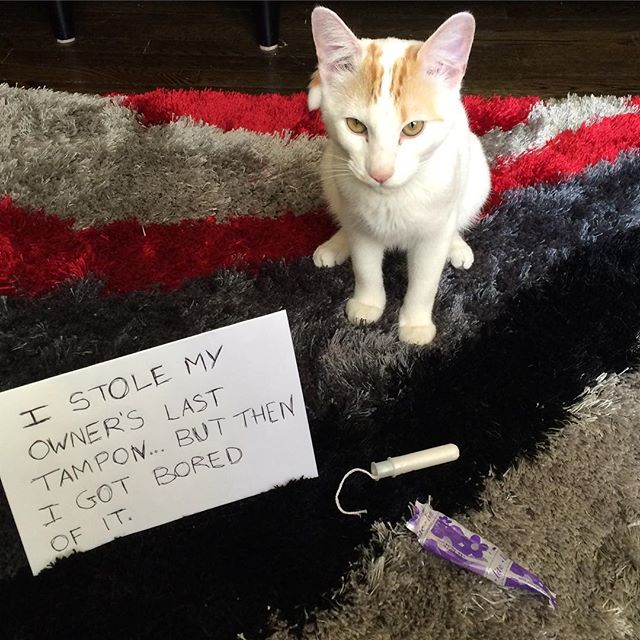 I STOLE MY
OWNER'S LAST
TAMPON... BUT THEN
I GOT BORED
OF IT.